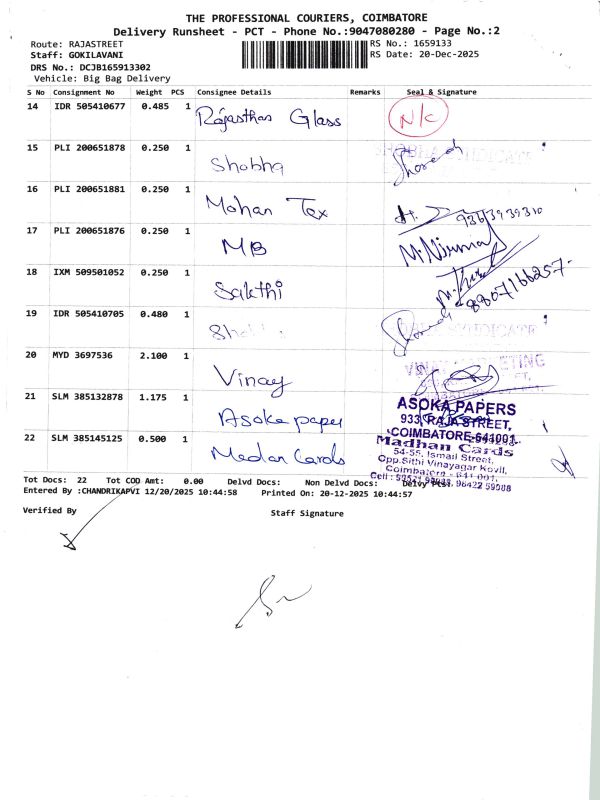 THE PROFESSIONAL COURIERS, COIMBATORE
Delivery Runsheet - PCT - Phone No.:9047080280 - Page No.:2
Route: RAJASTREET
Staff: GOKILAVANI
DRS No.: DCJB165913302
Vehicle: Big Bag Delivery
RS No.: 1659133
RS Date: 20-Dec-2025
S No Consignment No Weight PCS Consignee Details Remarks Seal & Signature
14 IDR 505410677 0.485 1 Rajasthan Glass N/C
15 PLI 200651878 0.250 1 Shobha SHOBHA SYNDICATE
16 PLI 200651881 0.250 1 Mohan Tex 9363939310
17 PLI 200651876 0.250 1 MB M.Nirmal
18 IXM 509501052 0.250 1 Sakthi 8807166257
19 IDR 505410705 0.480 1 SYNDICATE
20 MYD 3697536 2.100 1 Vinay VINAY MARKETING
21 SLM 385132878 1.175 1 Asoka paper ASOKA PAPERS
933, RAJA STREET,
COIMBATORE-641001.
22 SLM 385145125 0.500 1 Medan Cards Madhan Cards
54-55, Ismail Street,
Opp.Sithi Vinayagar Kovil,
Coimbatore - 641 001.
Cell : 96422 59088
Tot Docs: 22 Tot COD Amt: 0.00 Delvd Docs: Non Delvd Docs: Delvy Pct:
Entered By :CHANDRIKAPVI 12/20/2025 10:44:58 Printed On: 20-12-2025 10:44:57
Verified By Staff Signature